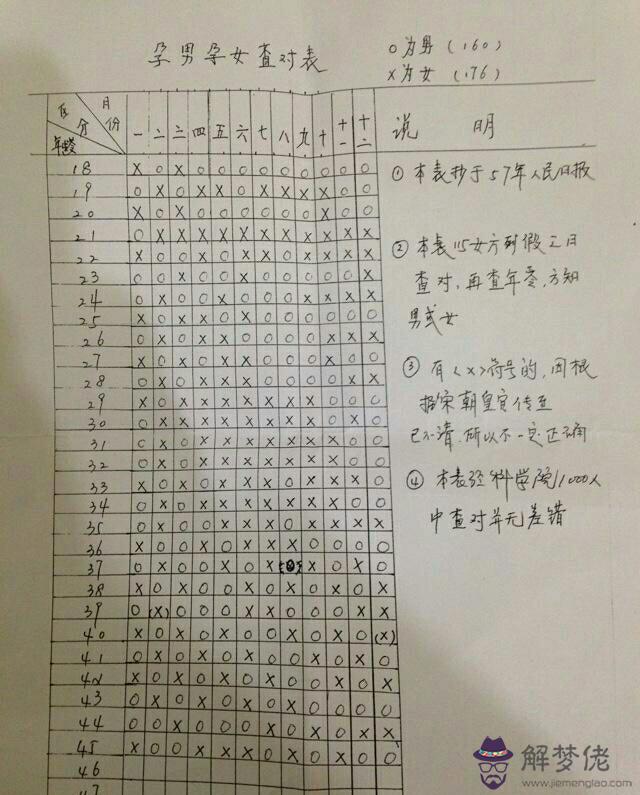 孕男孕女查对表
O为男（160）
X为女（176）
月份
区分
年龄
一 二 三 四 五 六 七 八 九 十 十一 十二
说 明
18 X O X O O O O O O O O O
19 O X O X X O X X X X O O
20 X O X O O O O O O X O O
21 O X X X X X X X X X X X
22 X O O X O X X O X X X X
23 O O X O O X O O O O O X
24 O X O O X O O O X X X X
25 X O X X O X O O O O O O
26 O X O X X O O O O X X X
27 X O X O X X O O O X O O
28 O X O X X X O O O O X X
29 X O X X X X X X X O O O
30 O X X X X X X X X O X O
31 O X O X X X X X X X O O
32 O X O X X X X X X X O O
33 X O X O X X X X X X O O
34 O X O X X X X X X X O O
35 O X O O X X X O X X X X
36 X O O X O X X X O O O O
37 O X O O X O X X O X O
38 X O X O O X O X O X O X
39 O (X) O O O X X O O O X X
40 X O X O X O O X O X O (X)
41 O X O X O X O O X O X O
42 X O X O X O X O O X O X
43 O X O X O X O X O O O O
44 O O X O O O X O X O X X
45 X O O X X X O X O X O O
46
47
① 本表抄于57年人民日报
② 本表以女方到假三日
查对，再查年零，方知
男或女
③ 有〈X〉符号的，因根
据宋朝皇宫传至
已不清，所以不一定正确
④ 本表经科学院1000人
中查对并无差错
解梦佬
www.jiemenglao.com